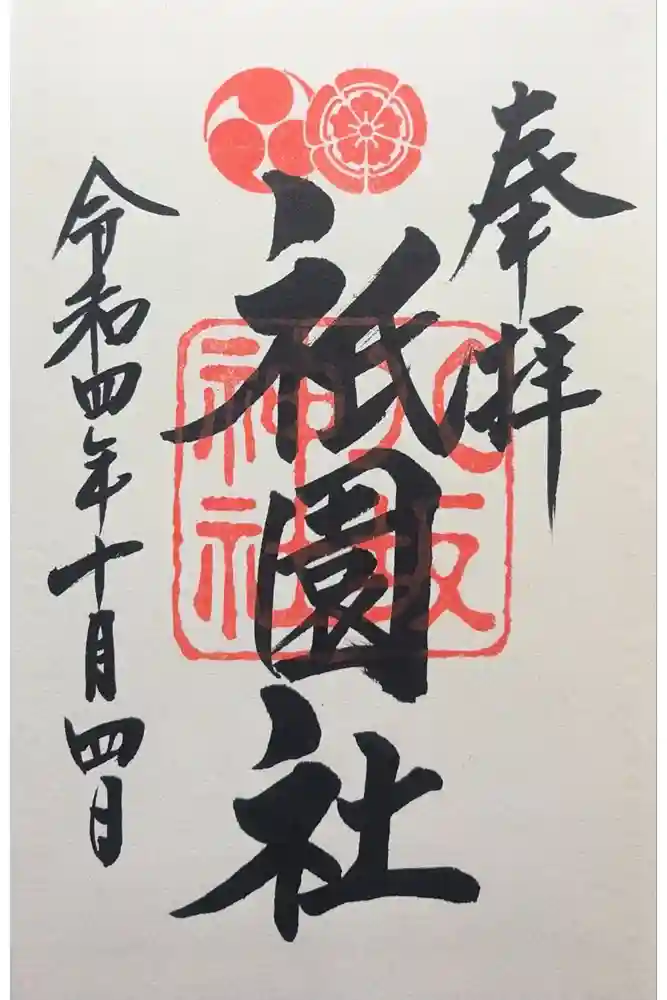 奉拝
八坂
神社
祇園社
令和四年十月四日